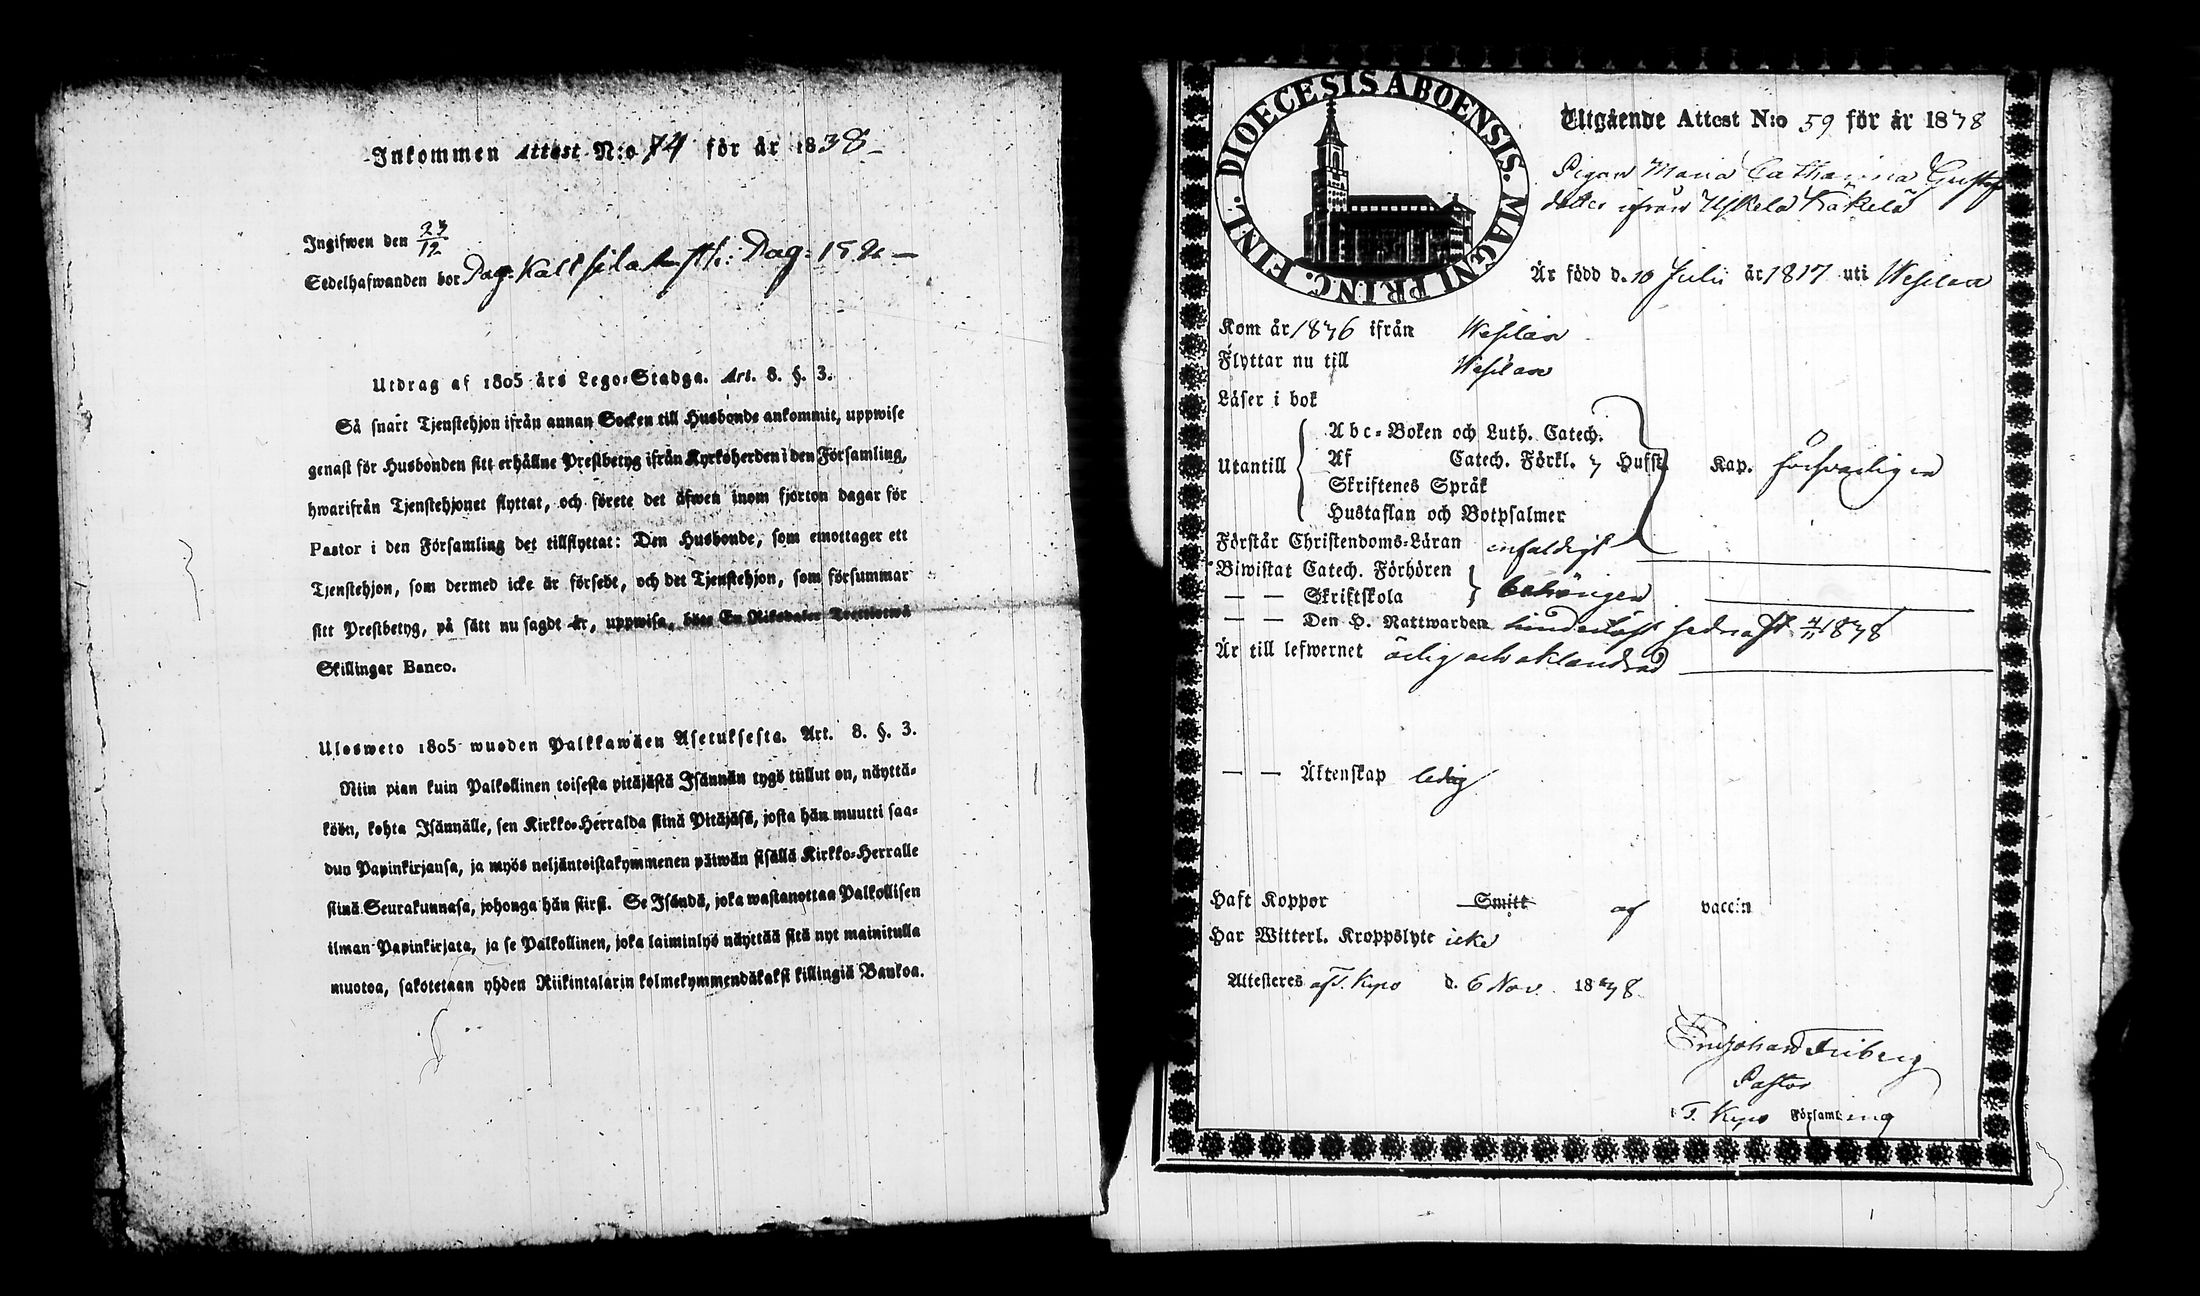 Inkommen Attest N:o 74 för år 1838
Ingifwen den 23/12
Sedelhafwanden bor Dag:
Utdrag af 1805 års Lego-Stadga. Art. 8. §. 3.
Så snart Tjenstehjon ifrån annan Socken till Husbonde ankommit, uppwise
genast för Husbonden sitt erhållne Prestbetyg ifrån Kyrkoherden i den Församling,
hwarifrån Tjenstehjonet flyttat, och förete det äfwen inom fjorton dagar för
Pastor i den Församling det tillflyttat: Den Husbonde, som emottager ett
Tjenstehjon, som dermed icke är försedt, och det Tjenstehjon, som försummar
sitt Prestbetyg, på sätt nu sagdt är, uppwisa, böte En Riksdaler Trettiotwå
Skillingar Banco.
Ulosweto 1805 wuoden Palkkawäen Asetuksesta. Art. 8. §. 3.
Niin pian kuin Palkollinen toisesta pitäjästä Isännän tygö tullut on, näyttä-
köön, kohta Isännälle, sen Kirkko-Herralda siinä Pitäjäsä, josta hän muutti saa-
dun Papinkirjansa, ja myös neljäntoistakymmenen päiwän sisällä Kirkko-Herralle
siinä Seurakunnasa, johonga hän siirsi. Se Isändä, joka wastanottaa Palkollisen
ilman Papinkirjata, ja se Palkollinen, joka laiminlyö näyttää sitä nyt mainitulla
muotoa, sakotetaan yhden Riikintalarin kolmekymmendäkaksi killingiä Bankoa.
DIOECESIS ABOENSIS. MAGNI PRINC. FINL.
Utgående Attest N:o 59 för år 1838
Pigan Maria Catharina Gustafs
dotter ifrån
Är född d. 10 Julii år 1817 uti Wesilax
Kom år 1836 ifrån Wesilax
Flyttar nu till Wesilax
Läser i bok
Utantill
Abc-Boken och Luth. Catech.
Af Catech. Förkl. Hufst. Kap. försvarligen
Skriftenes Språk
Hustaflan och Botpsalmer
Förstår Christendoms-Läran enfaldigt
Biwistat Catech. Förhören
— — Skriftskola behörigen
— — Den H. Nattwarden sednast 4/11 1838
Är till lefwernet ärlig och oklandrad
— — Äktenskap ledig
Haft Koppor Smitt af vaccin
Har Witterl. Kroppslyte icke
Attesteres af T. Kyro d. 6 Nov. 1838
Friberg
Pastor
i T. Kyro Församling